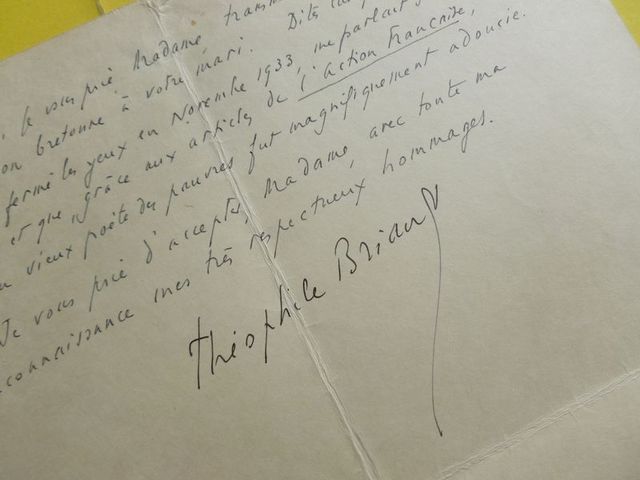 je vous prie Madame, transm
on bretonne à votre mari. Dites
fermé les yeux en Novembre 1933, me parlait
et que grâce aux articles de l'Action Française,
vieux poète des pauvres fut magnifiquement adoucie.
Je vous prie d'accepter, Madame, avec toute ma
connaissance mes très respectueux hommages.
Théophile Briant